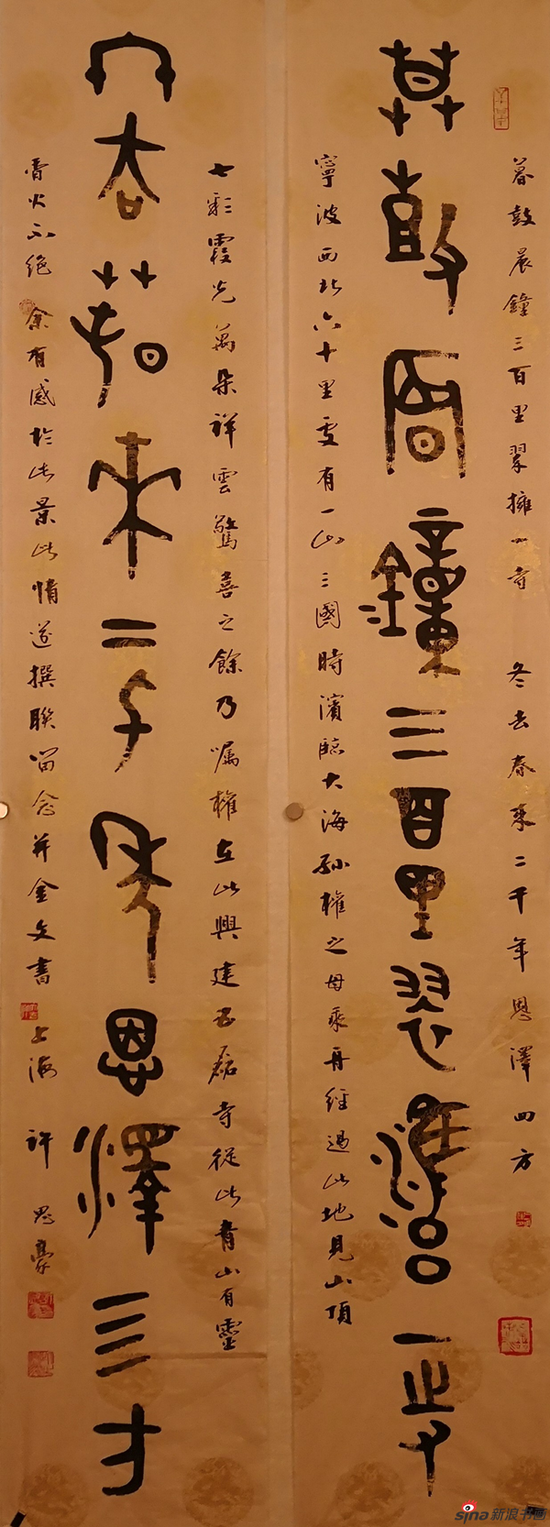 暮鼓晨鐘三百里翠擁一寺 冬去春來二千年恩澤四方
暮鼓晨鐘三百里翠擁一寺
寧波西北六十里處有一山三國時濱臨大海孫權之母乘舟經過此地見山頂
七彩霞光萬朵祥雲驚喜之餘乃囑權在此興建五磊寺從此青山有靈
冬去春來二千年恩澤四方
香火不絕 余有感於此景此情遂撰聯留念并金文書 上海 許思豪
sina新浪书画